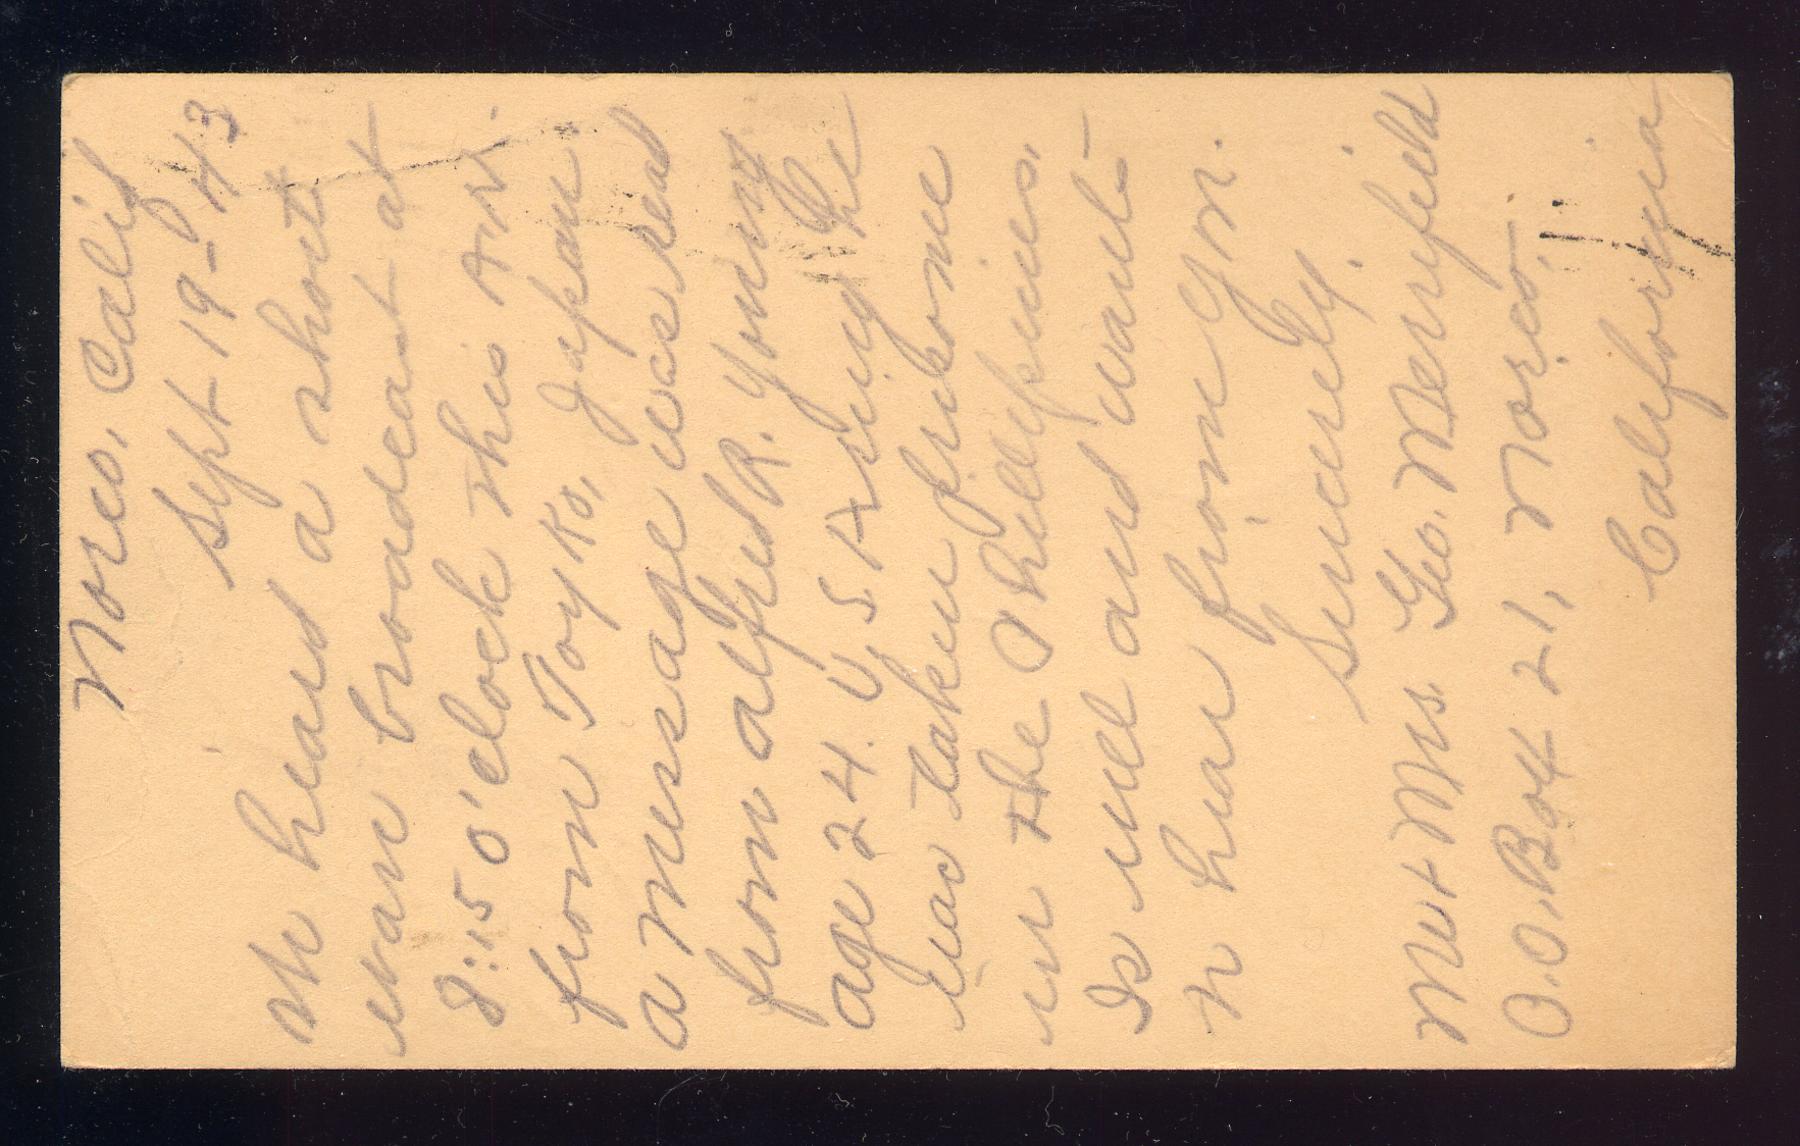 Norco, Calif
Sept-19-43
We heard a short
wave broadcast at
8:15 O'clock this AM.
from Toyko, Japan
a message was read
from Alfred R. Young
age 24. U.S. Army He
was taken prisoner
in the Phillipines.
Is well and wants
to hear from you.
Sincerely.
Mr + Mrs. Geo. Merryfield
P.O. Box 21, Norco,
California